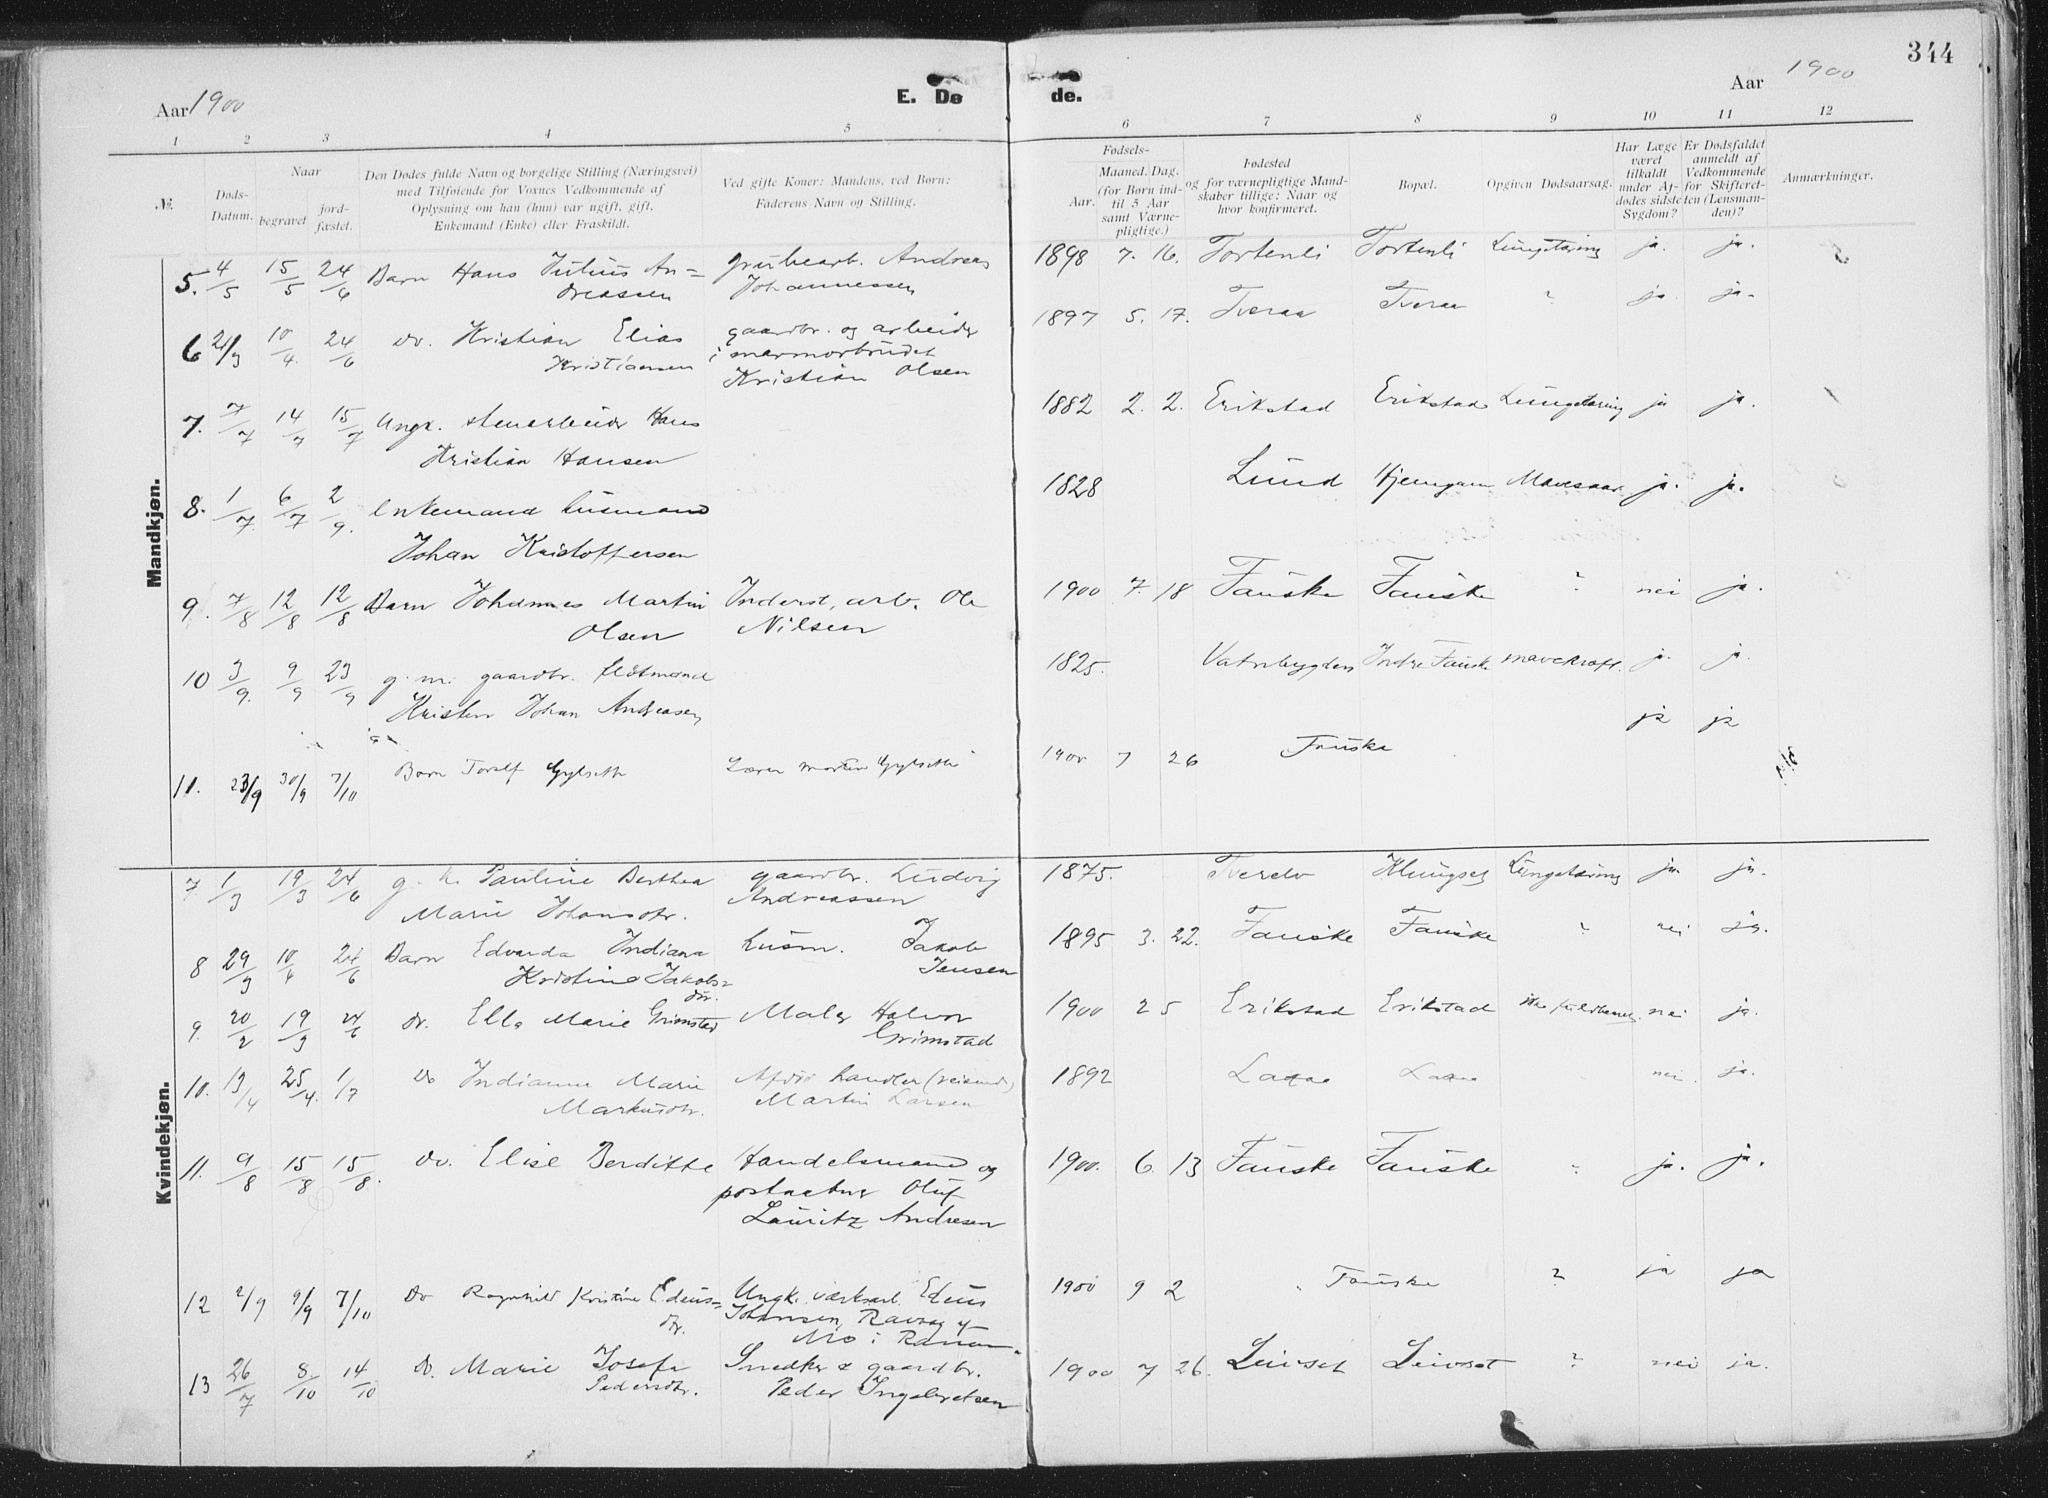 344
Aar 1900
E. Dø
de.
Aar 1900
1 2 3 4 5 6 7 8 9 10 11 12
№.
Døds-
Datum.
Naar
begravet
jord-
fæstet.
Den Dødes fulde Navn og borgelige Stilling (Næringsvei)
med Tilføiende for Voxnes Vedkommende af
Oplysning om han (hun) var ugift, gift,
Enkemand (Enke) eller Fraskildt.
Ved gifte Koner: Mandens, ved Børn:
Faderens Navn og Stilling.
Fødsels-
Aar.
Maaned. Dag.
(for Børn ind-
til 5 Aar
samt Værne-
pligtige.)
Fødested
og for værnepligtige Mand-
skaber tillige: Naar og
hvor konfirmeret.
Bopæl.
Opgiven Dødsaarsag.
Har Læge
været
tilkaldt
under Af-
dødes sidste
Sygdom?
Er Dødsfaldet
anmeldt af
Vedkommende
for Skifteret-
ten (Lensman-
den)?
Anmærkninger.
Mandkjøn.
5. 4/5 15/5 24/6 Barn Hans Julius An= grubearb. Andreas 1898 7. 16. Tortenli Tortenli Lungetæring ja. ja.
dreassen Johannessen
6 21/3 10/4. 24/6 do. Kristian Elias gaardbr. og arbeider 1897 5. 17. Tveraa Tveraa " ja. ja.
Kristiansen i marmorbrudet
Kristian Olsen
7. 7/7 14/7 15/7 Ungk. stenarbeider Hans 1882 2. 2. Erikstad Erikstad Lungetæring ja ja.
Kristian Hansen
8. 1/7. 6/7 2/9. Enkemand husmand 1828 Lund Hjemgam Mavesaar ja. ja.
Johan Kristoffersen
9. 7/8 12/8 12/8 Barn Johannes Martin Inderst, arb. Ole 1900 7. 18 Fauske Fauske ? nei ja.
Olsen Nilsen
10 3/9. 9/9 23/9 g. m. gaardbr. 1825. Vatnbygden Indre Fauske mavekræft. ja. ja.
Kristen Johan Andreasen
ja ja
11. 23/9 30/9 7/10 Barn Toralf Gylseth Lærer Gylseth 1900 7 26 Fauske
Kvindekjøn.
7 1/3 19/3 24/6 g. k. Pauline Berthea gaardbr. Ludvig 1875. Tverelv Klungset Lungetæring ja. ja.
Marie Johansdtr. Andreassen
8 29/3 10/4 24/6 Barn Edvarda Indiana husm. Jakob 1895 3. 22. Fauske Fauske " nei ja.
Kristine Jakobs= Jensen
dtr.
9. 20/2 19/3 24/6 do. Ella Marie Grimstad Maler Halvor 1900 2 5 Erikstad Erikstad ikke fuldbaaret. nei ja.
Grimstad
10. 13/4 25/4. 1/7 Do Indianna Marie Afdøde handler (reisende) 1892 nei. ja.
Markusdtr. Martin Larsen
11. 9/8 15/8 15/8. do. Elise Berditte Handelsmand og 1900. 6. 13 Fauske Fauske ? ja. ja.
postaabner Oluf
Lauritz Andresen
12 2/9 9/9 7/10 Do Ragnhild Kristine Edeus= Ungk. værksarb. Edeus 1900 9 2 Fauske ? ja ja
dtr. Johansen,
Mo i Ranen.
13 26/7 8/10 14/10 do. Marie Josefa Snedker & gaardbr. 1900 7 26. Leivset Leivset ? nei ja.
Pedersdtr. Peder Ingebretsen